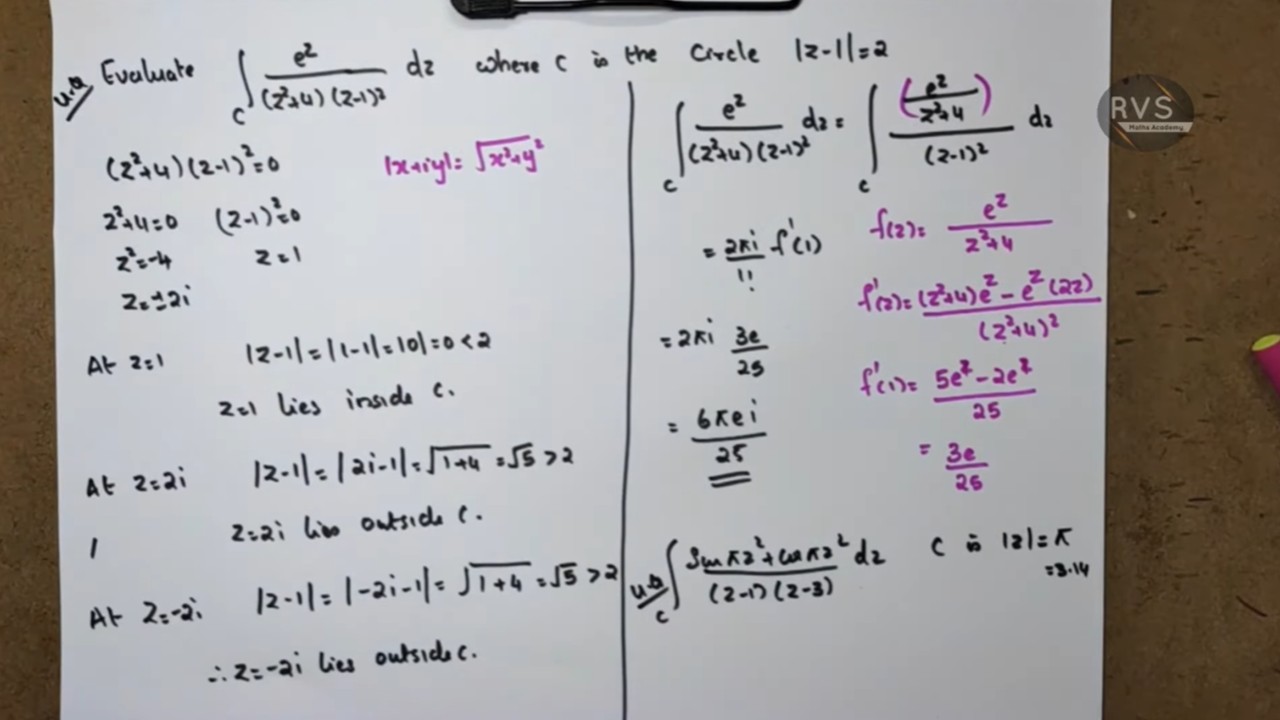 U.Q Evaluate ∫_C e^z/((z²+4)(z-1)²) dz where C is the Circle |z-1|=2
(z²+4)(z-1)²=0
|x+iy|=√(x²+y²)
z²+4=0 (z-1)²=0
z²=-4 z=1
z=±2i
At z=1 |z-1|=|1-1|=|0|=0<2
z=1 lies inside C.
At z=2i |z-1|=|2i-1|=√(1+4)=√5>2
z=2i lies outside C.
At z=-2i |z-1|=|-2i-1|=√(1+4)=√5>2
∴ z=-2i lies outside C.
∫_C e^z/((z²+4)(z-1)²) dz = ∫_C (e^z/(z²+4))/(z-1)² dz
= 2πi/1! f'(1)
= 2πi 3e/25
= 6πei/25
f(z)= e^z/(z²+4)
f'(z)= ((z²+4)e^z - e^z(2z))/(z²+4)²
f'(1)= (5e^z-2e^z)/25
= 3e/25
U.Q ∫_C (Sin πz²+cos πz²)/((z-1)(z-3)) dz C is |z|=π
=3.14
RVS
Maths Academy